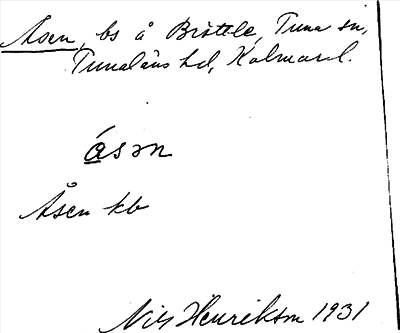 Åsen, bs å Bröttle, Tuna sn,
Tunaläns hd, Kalmar l.
åsən
Åsen kb
Nils Henrikson 1931